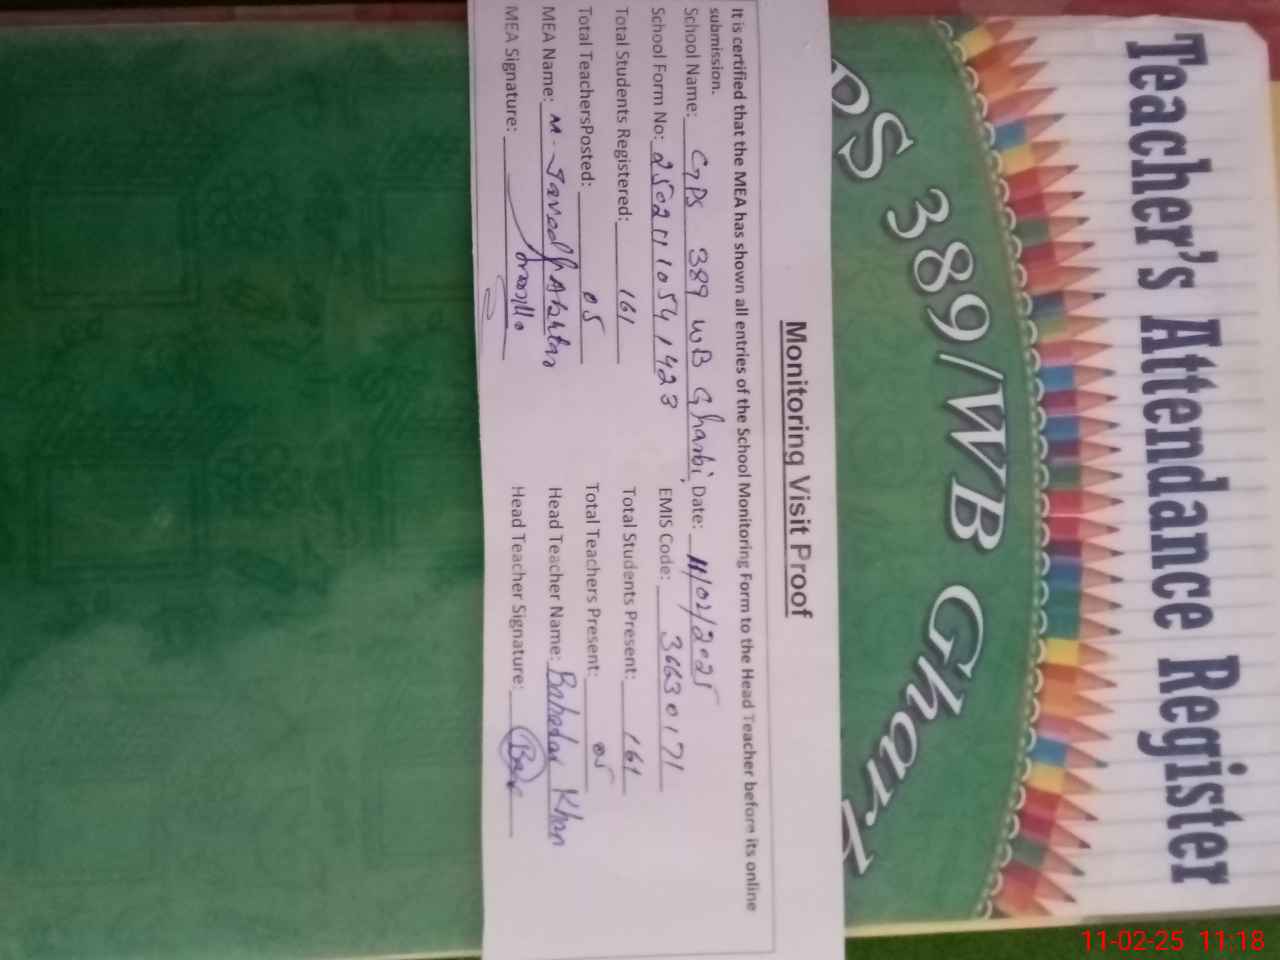 Teacher's Attendance Register
PS 389/WB Ghar
Monitoring Visit Proof
It is certified that the MEA has shown all entries of the School Monitoring Form to the Head Teacher before its online
submission.
School Name: GPS 389 WB Gharbi, Date: 11/02/2025
School Form No: 25021110541423 EMIS Code: 36630171
Total Students Registered: 161 Total Students Present: 161
Total TeachersPosted: 05 Total Teachers Present: 05
MEA Name: M. Javed Akhtar Head Teacher Name: Khan
MEA Signature: Head Teacher Signature:
11-02-25 11:18